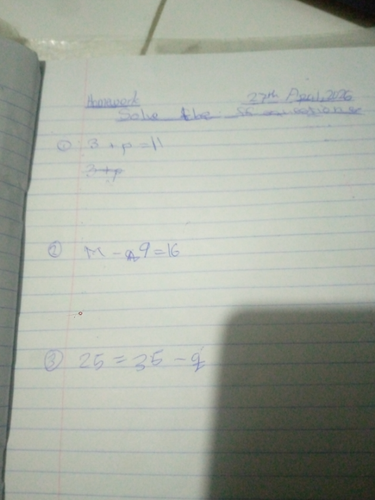 Homework 27th April, 2026
Solve the equations
① 3 + p = 11
3 + p
② M - 9 = 16
③ 25 = 35 - q